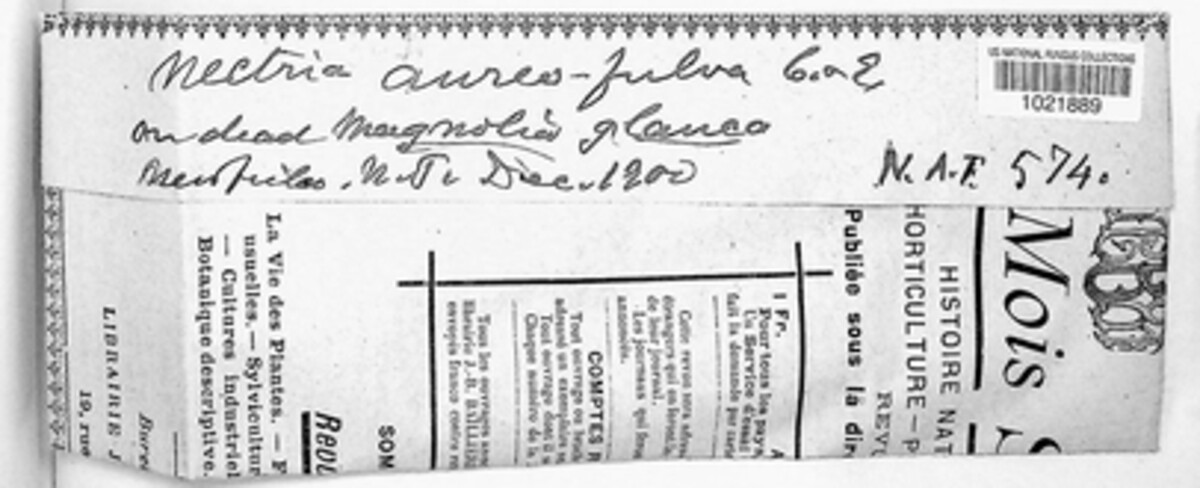 Nectria aureo-fulva C. & E.
on dead Magnolia glauca
Newfield. N.J. Dec. 1900
N. A. F. 574.
US NATIONAL FUNGUS COLLECTIONS
1021889
Mois
HISTOIRE NAT
HORTICULTURE — P
REVU
Publiée sous la dir
1 Fr.
Pour tous les pays,
Un Service d'essai
fait la demande par carte
Cette revue sera adressée
étrangers qui en
de leur journal.
Les journaux qui
annoncés.
COMPTES R
Tout ouvrage ou
adressé un exemplaire
Tout ouvrage dont il
Chaque numéro de la
Tous les ouvrages
librairie J.-B. BAILLIÈRE
envoyés franco contre
SOM
REVU
La Vie des Plantes. — F
usuelles. — Sylvicultur
— Cultures industriel
Botanique descriptive.
Bure
LIBRAIRIE J
19, rue